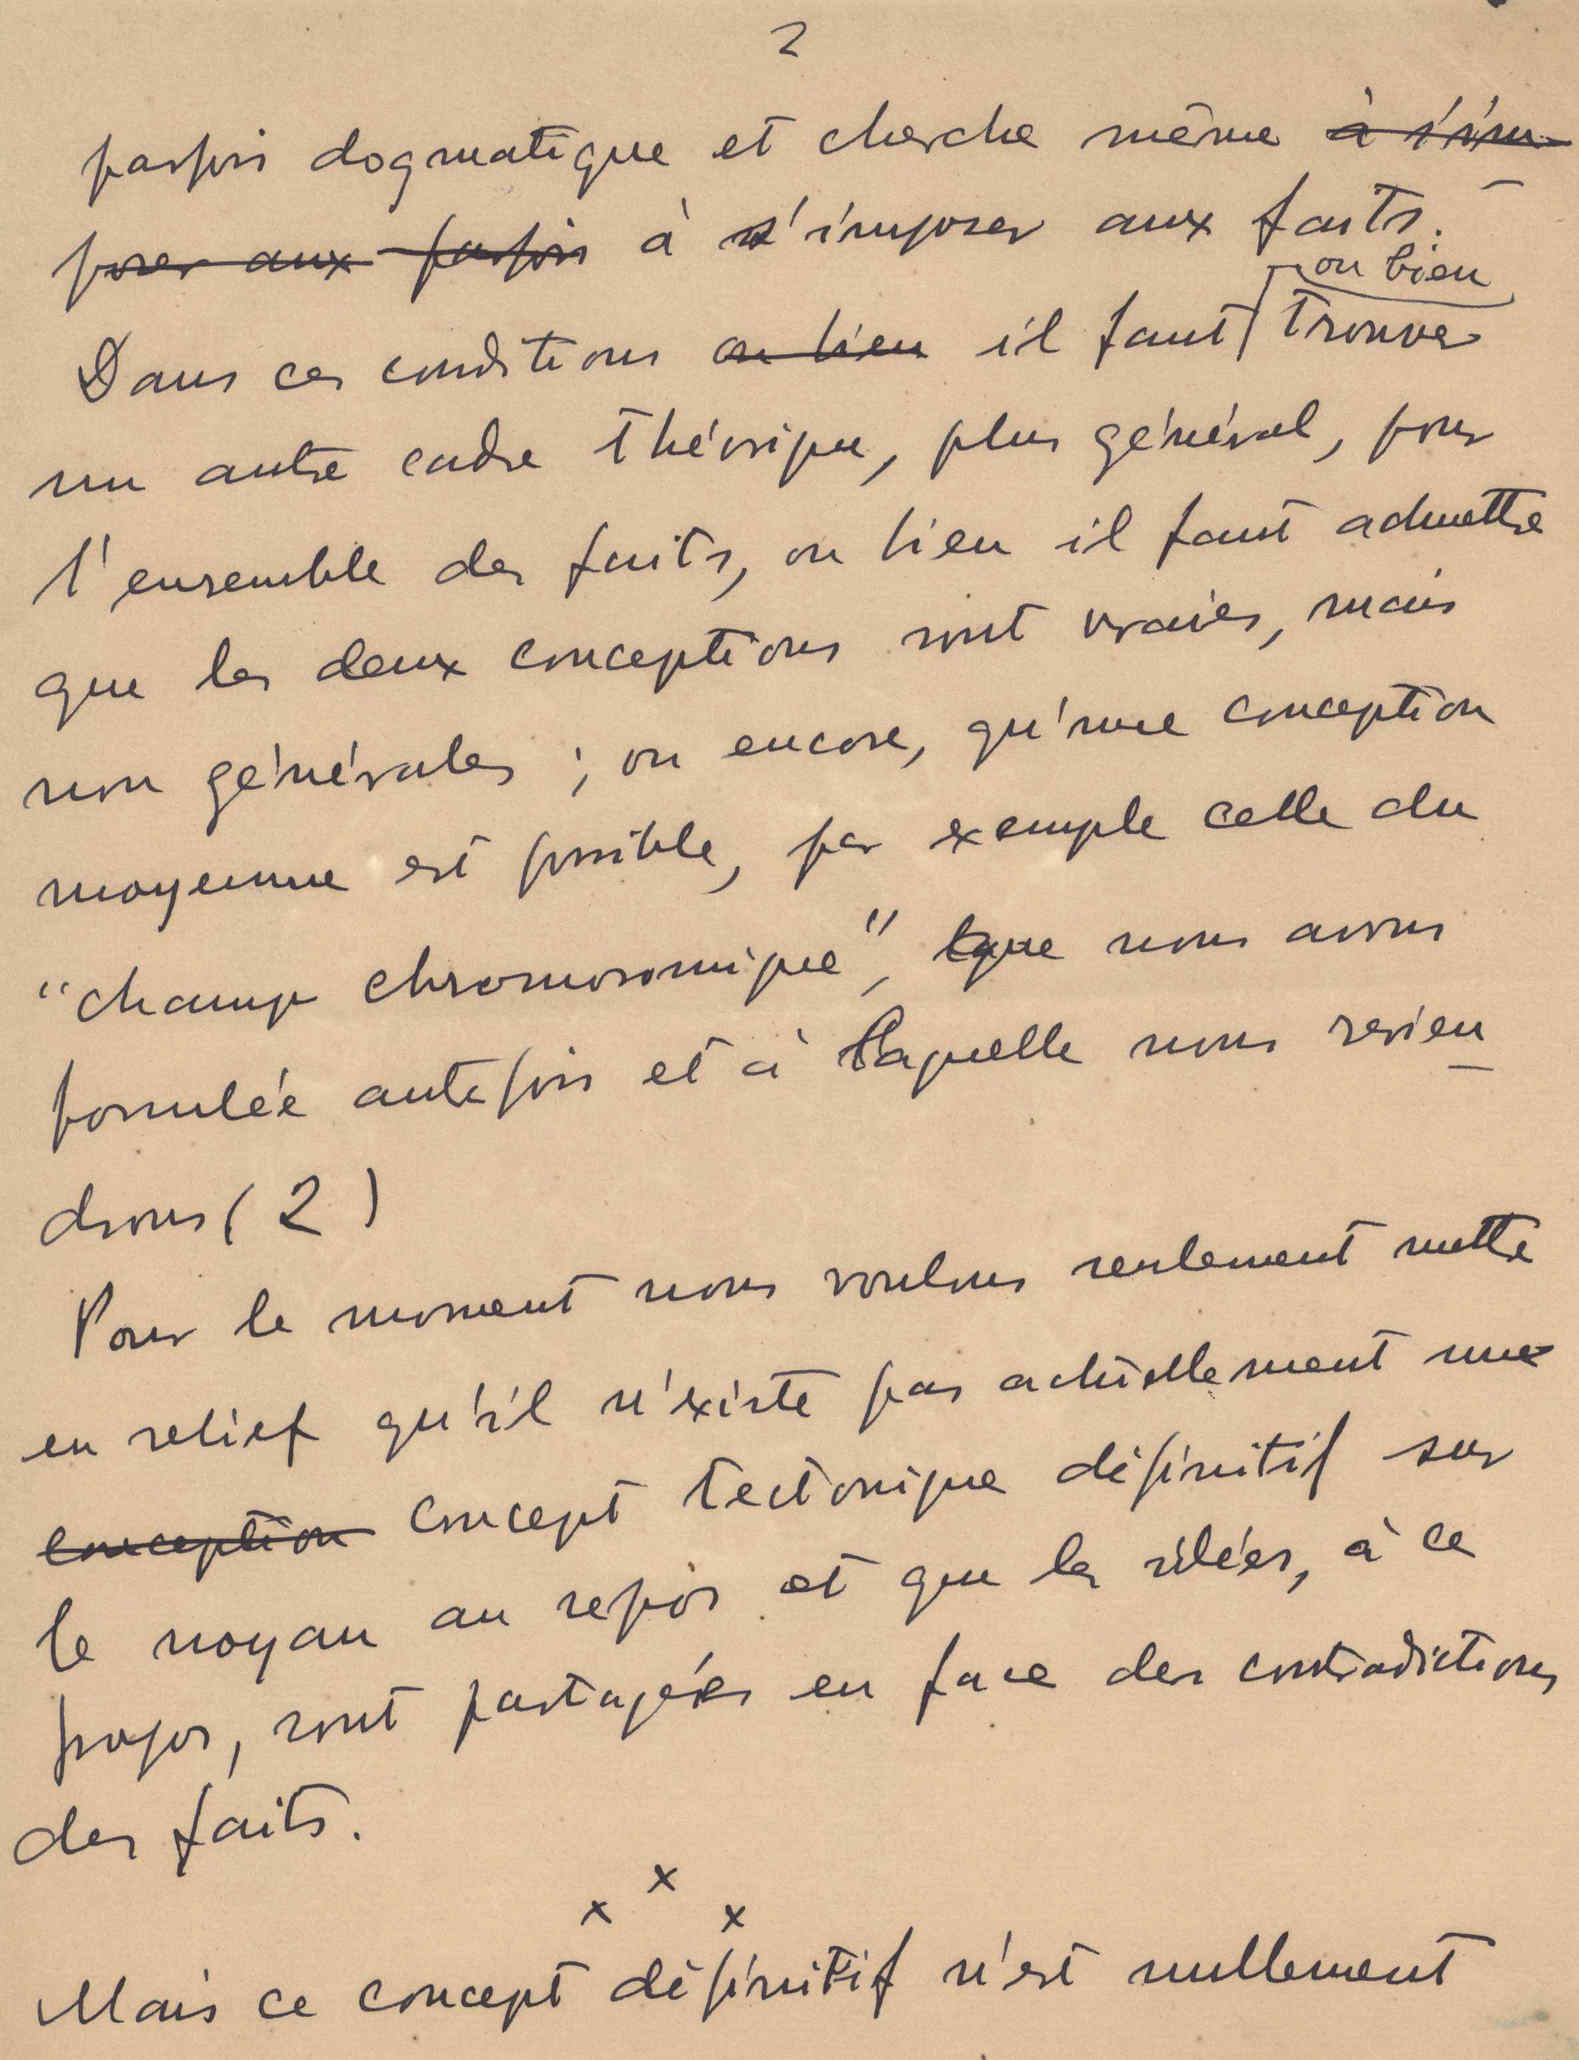 2
parfois dogmatique et cherche même ~~à s'im-~~
~~poser aux parfois~~ à s'imposer aux faits.
ou bien
Dans ces conditions ~~ou bien~~ il faut trouver
un autre cadre théorique, plus général, pour
l'ensemble des faits, ou bien il faut admettre
que les deux conceptions sont vraies, mais
non générales ; ou encore, qu'une conception
moyenne est possible, par exemple celle du
"champ chromosomique", que nous avons
formulée autefois et à laquelle nous revien-
drons (2)
Pour le moment nous voulons seulement mettre
en relief qu'il n'existe pas actuellement une
~~conception~~ concept tectonique définitif sur
le noyau au repos et que les idées, à ce
propos, sont partagées en face des contradictions
des faits.
x x x
Mais ce concept définitif n'est nullement